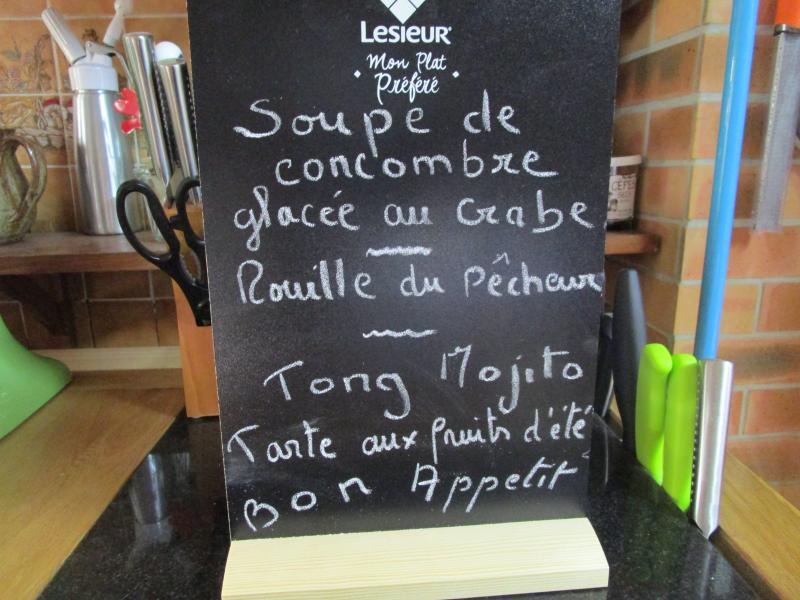 Lesieur
Mon Plat
Préféré
Soupe de
concombre
glacée au crabe
Rouille du Pêcheur
Tong Mojito
Tarte aux fruits d'été
Bon Appetit